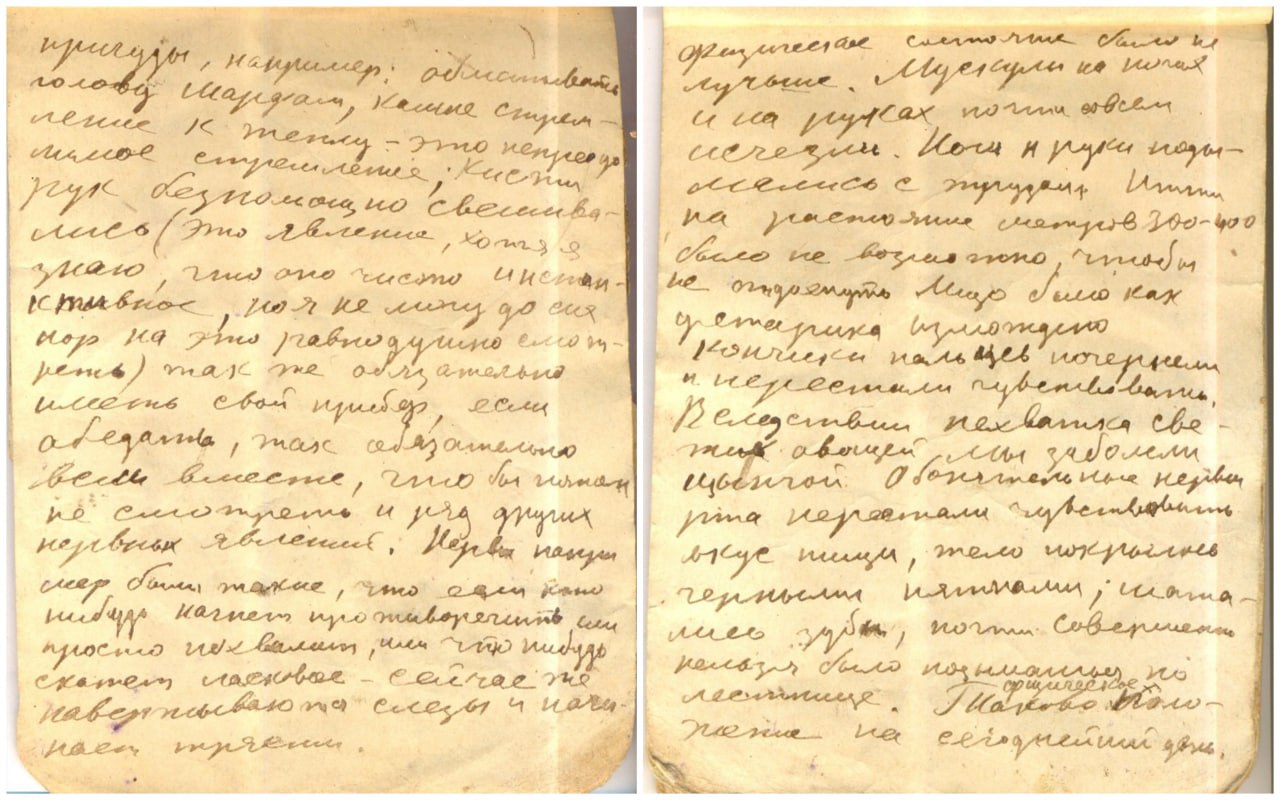 причуды, например: обматывать
голову шарфом, какие стрем-
ление к теплу - это непреодо
мимое стремление; Кисти
рук безпомощно свешива-
лись (это явление, хотя я
знаю, что оно чисто инстин-
ктивное, но я не могу до сих
пор на это равнодушно смот-
реть) так же обязательно
иметь свой прибор, если
обедать, так обязательно
всем вместе, что бы
не смотреть и ряд других
нервных явлений. Нервы напри
мер были такие, что если кто
нибудь начнет противоречить или
просто похвалит, или что нибудь
скажет ласковое - сейчас же
навертываются слезы и начи-
нает трясти.
Физическое состояние было не
лучше. Мускулы на ногах
и на руках почти совсем
исчезли. Ноги и руки поды-
мались с трудом. Итти
на растояние метров 300-400
было не возможно, чтобы
не отдохнуть Лицо было как
у старика измождено
кончики пальцев почернели
и перестали чувствовать.
Вследствии нехватка све-
жих овощей мы заболели
цынгой Обонятельные нервы
рта перестали чувствовать
вкус пищи, тело покрылось
черными пятнами; шата-
лись зубы, почти совершенно
нельзя было подниматься по
лестнице. Таково физическое поло-
жение на сегоднейший день.